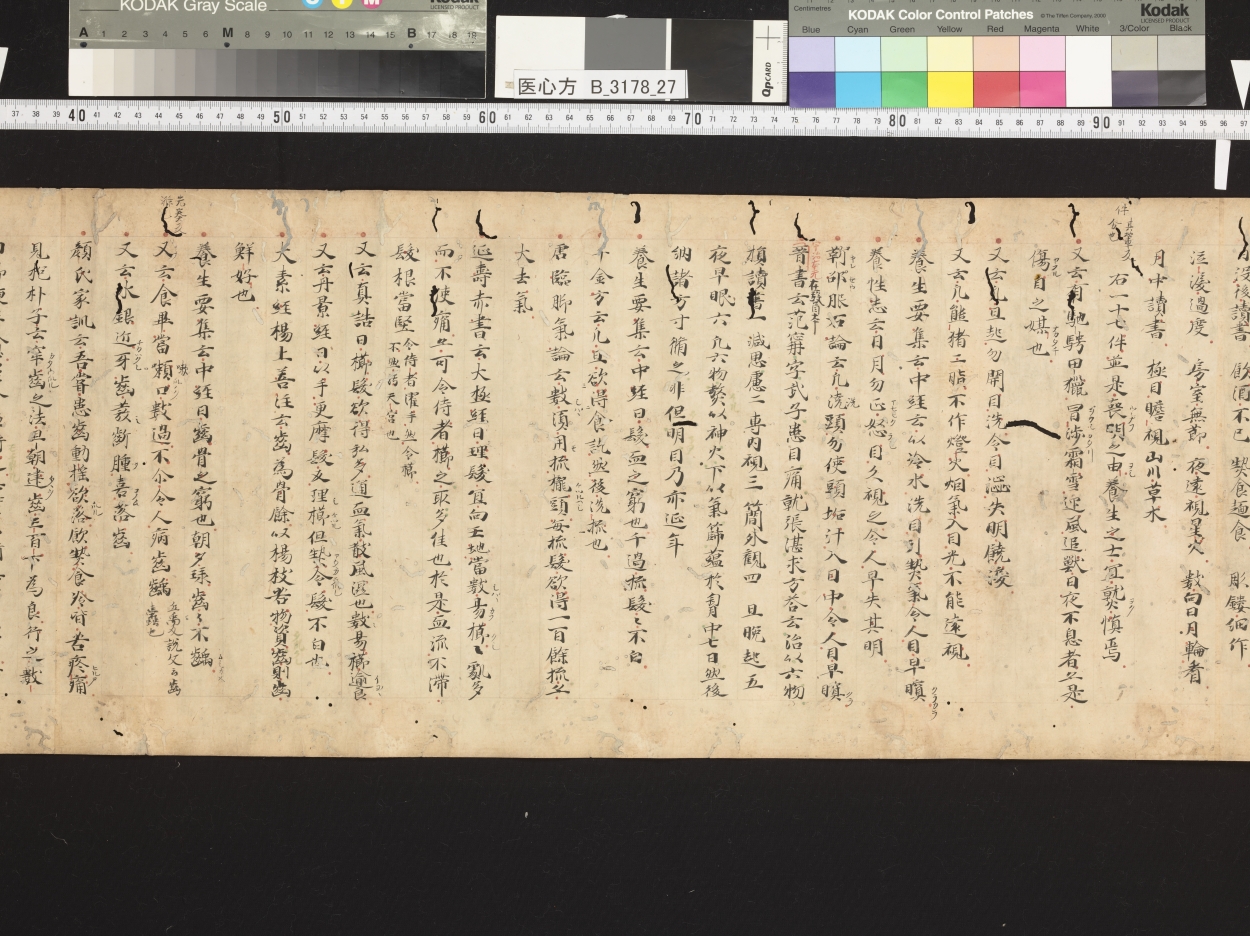 KODAK Gray Scale
Kodak
LICENSED PRODUCT
A 1 2 3 4 5 6 M 8 9 10 11 12 13 14 15 B 17 18 19
医心方 B_3178_27
QPCARD
Centimetres
KODAK Color Control Patches
© The Tiffen Company, 2000
Kodak
LICENSED PRODUCT
Blue Cyan Green Yellow Red Magenta White 3/Color Black
37 38 39 40 41 42 43 44 45 46 47 48 49 50 51 52 53 54 55 56 57 58 59 60 61 62 63 64 65 66 67 68 69 70 71 72 73 74 75 76 77 78 79 80 81 82 83 84 85 86 87 88 89 90 91 92 93 94 95 96 97
讀書 飲酒不已 熱食麺食
泣淚過度 房室無節 夜遠視星火 數向日月輪看
月中讀書 極目瞻視山川草木
右一十七件並是喪明之由養生之士宜熟慎焉
又云有馳騁田獵冒涉霜雪迎風追獸日夜不息者又是
傷目之媒也
又云凡旦起勿開目洗令目澁失明饒淚
又云凡熊猪二脂不作燈火烟氣入目光不能遠視
養生要集云中經云以冷水洗目引熱氣令人目早瞑
養性志云日月勿正怒目久視之令人早失其明
靳邵服石論云凡洗頭勿使頭垢汁入目中令人目早瞑
晉書云范甯字武子患目痛就張湛求方答云治以六物
損讀書一減思慮二專内視三簡外觀四旦晚起五
夜早眠六凡六物熬以神火下以氣簁蘊於胷中七日然後
納諸方寸脩之非但明目乃亦延年
養生要集云中經曰髮血之窮也千過梳髮々不白
千金方云凡旦欲得食訖然後洗梳也
唐臨脚氣論云數須用梳擺頭每梳髮欲得一百餘梳又
大去氣
延壽赤書云大極經曰理髮宜向王地當數易櫛々亂多
而不使痛亦可令侍者櫛之取多佳也於是血流不滯
髮根當堅
又云真誥曰櫛髮欲得私多道血氣散風濕也數易櫛逾良
又云丹景經曰以手更摩髮及理櫛但熱令髮不白也
大素經楊上善注云齒為骨餘以楊枝若物資齒則齒
鮮好也
養生要集云中經曰齒骨之窮也朝夕琢齒々不齲
又云食畢當漱口數過不尒令人病齒齲
又云水銀近牙齒發斷腫喜落齒
顏氏家訓云吾嘗患齒動搖欲落飲熱食冷皆苦疼痛
見抱朴子云牢齒之法旦朝建齒三百下為良行之數